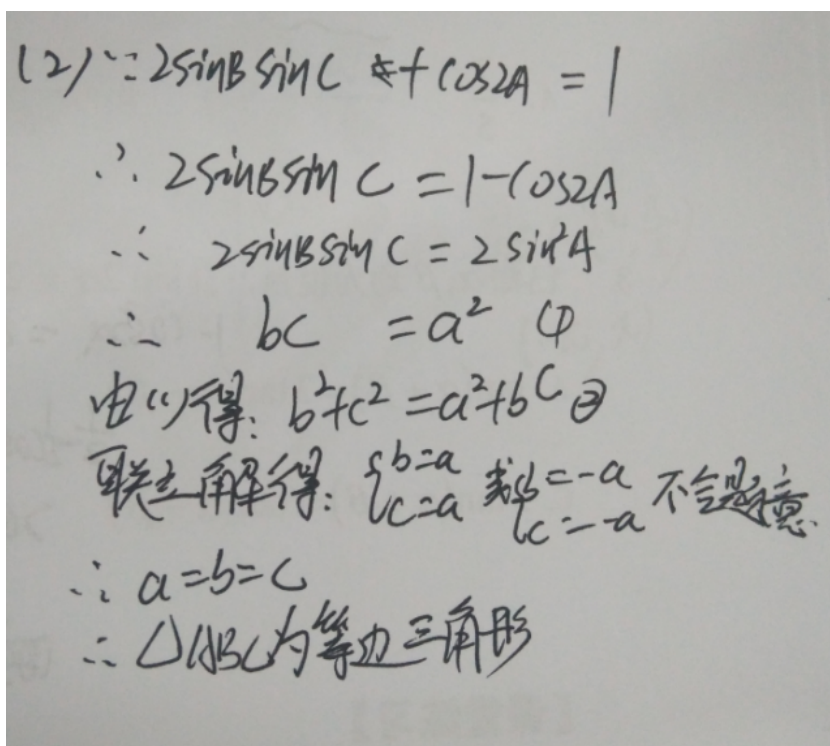 (2) ∵ 2sinBsinC + cos2A = 1
∴ 2sinBsinC = 1-cos2A
∴ 2sinBsinC = 2sin²A
∴ bc = a² ①
由(1)得: b²+c²=a²+bc ②
联立解得: {b=a c=a 或{b=-a c=-a 不合题意.
∴ a=b=c
∴ △ABC为等边三角形